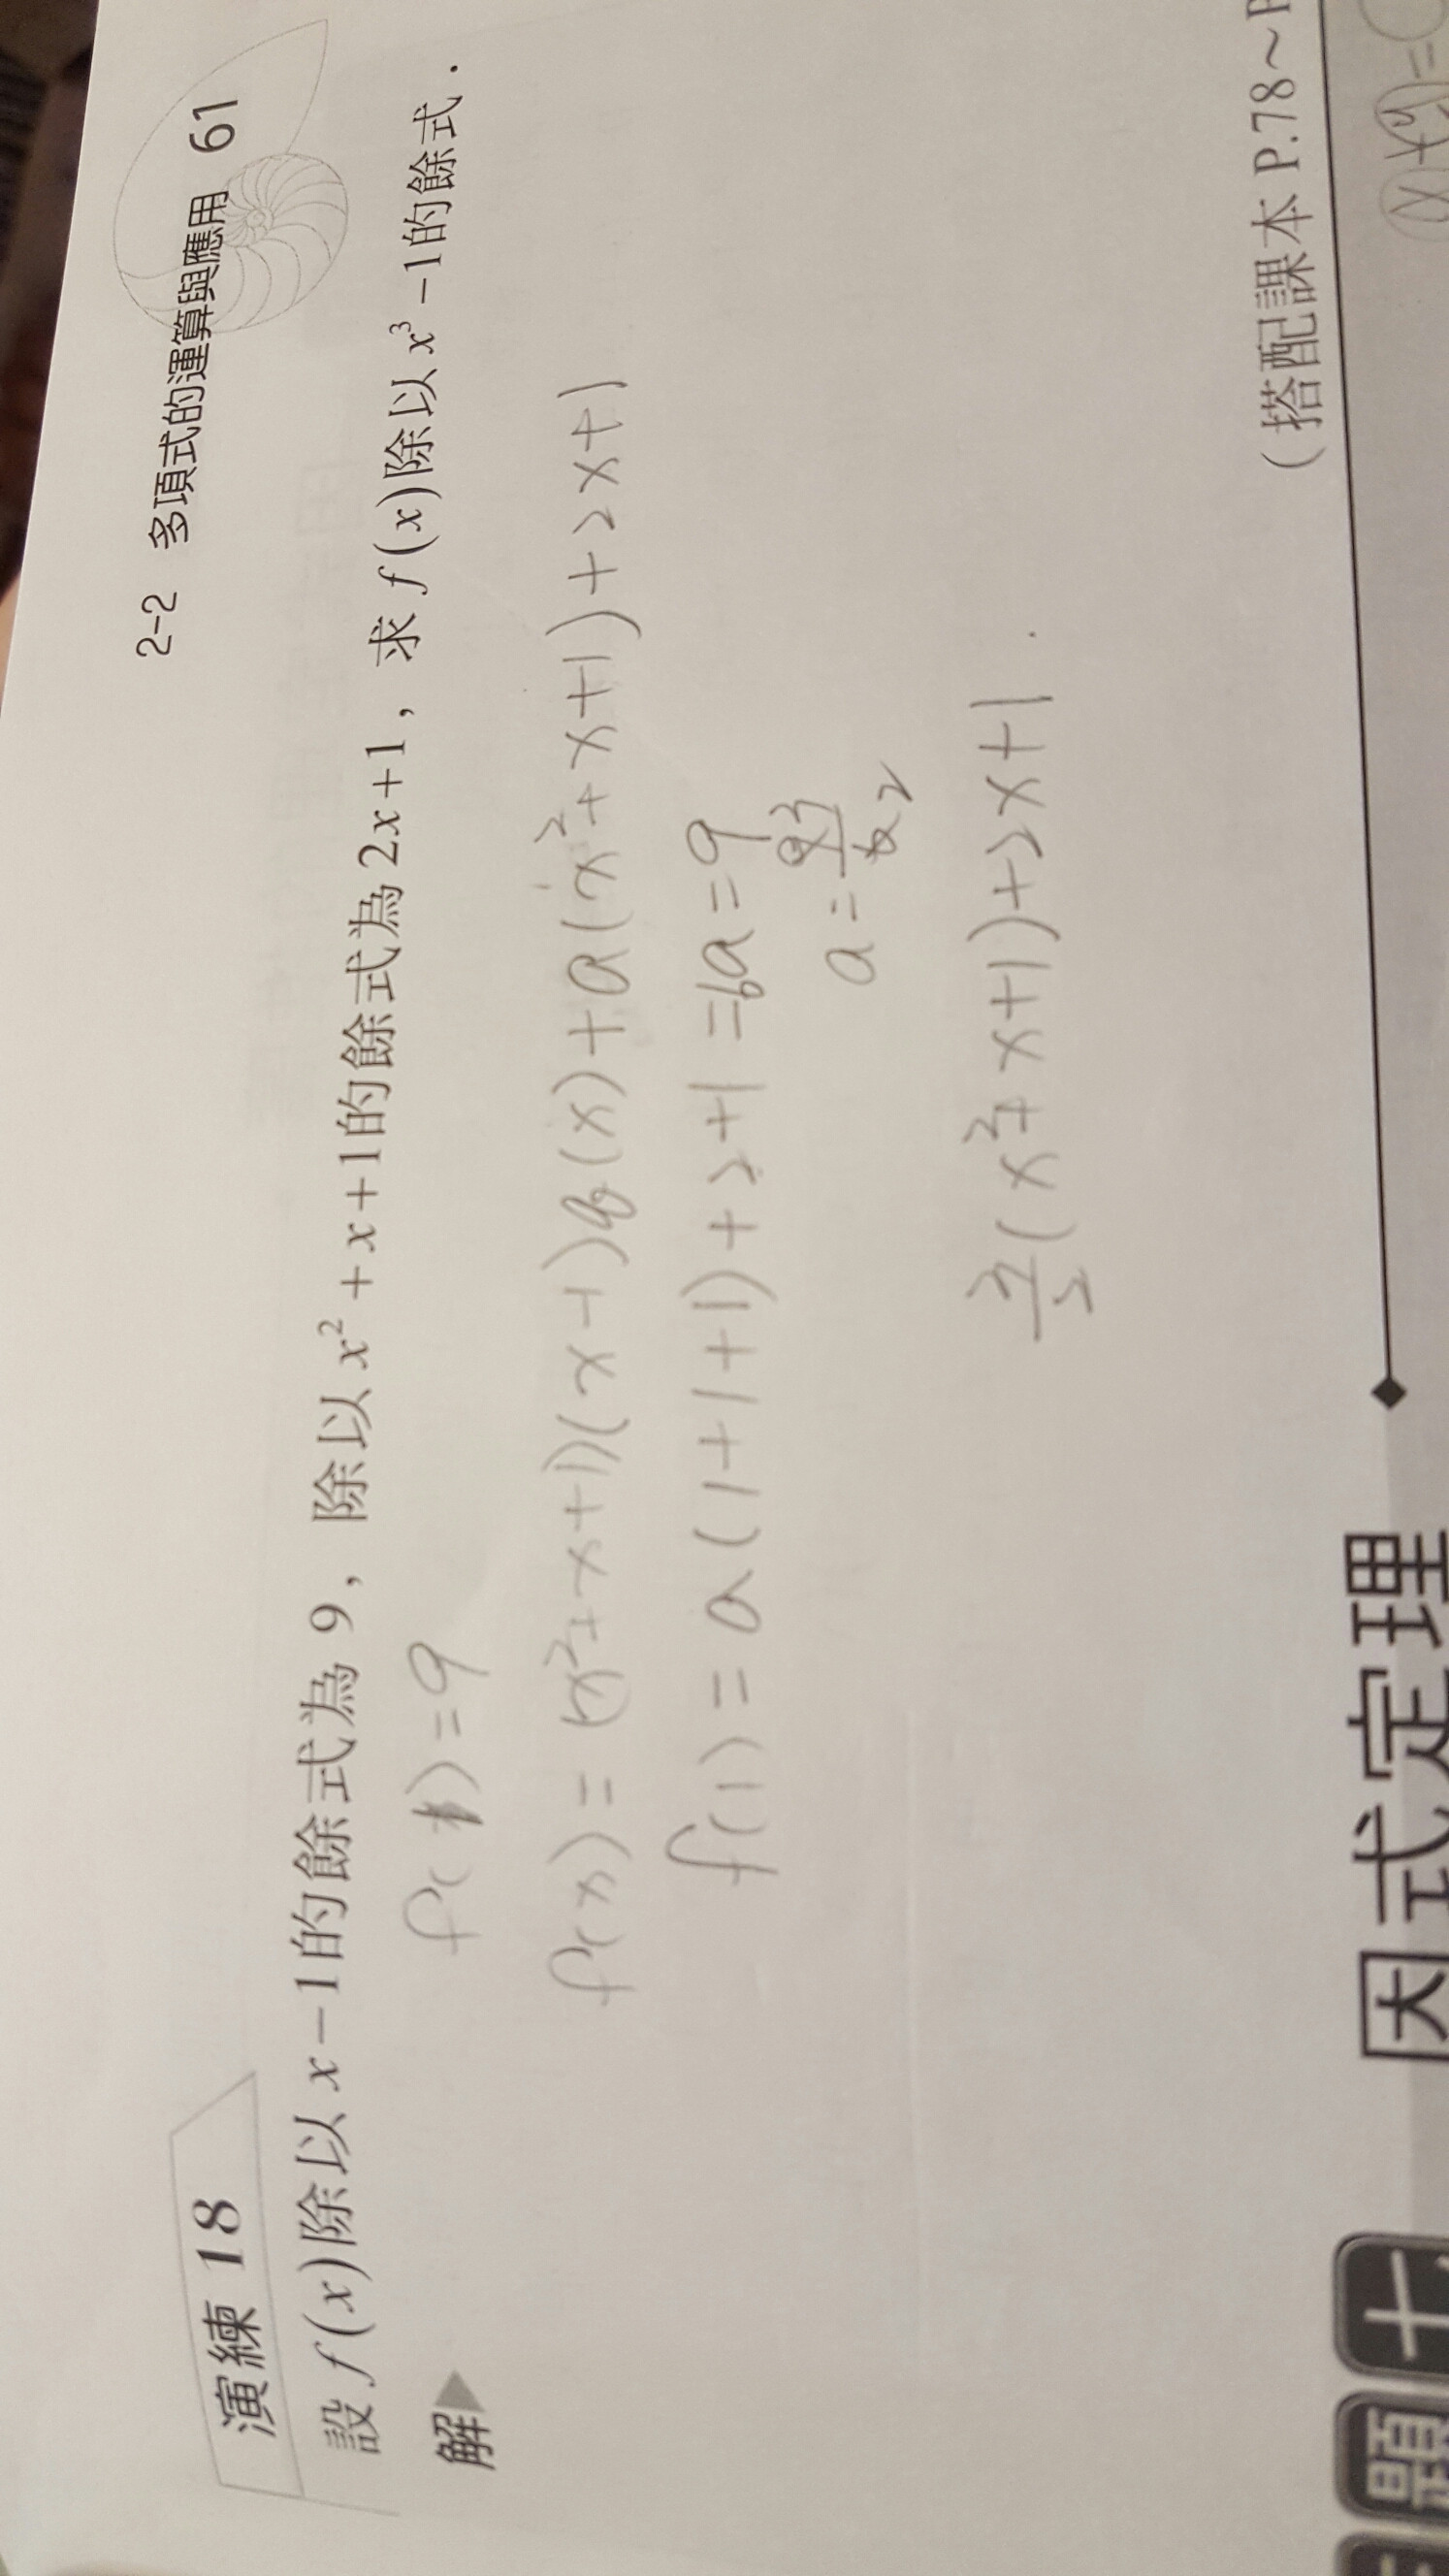 2-2 多項式的運算與應用 61
演練 18
設 f(x)除以 x-1的餘式為 9, 除以 x²+x+1的餘式為 2x+1, 求 f(x)除以 x³-1的餘式.
解
f(1)=9
f(x)=(x²+x+1)(x-1)q(x)+a(x²+x+1)+2x+1
f(1)=a(1+1+1)+2+1=6a=9
a=
3/2(x²+x+1)+2x+1.
(搭配課本 P.78~P
因式定理
題 十